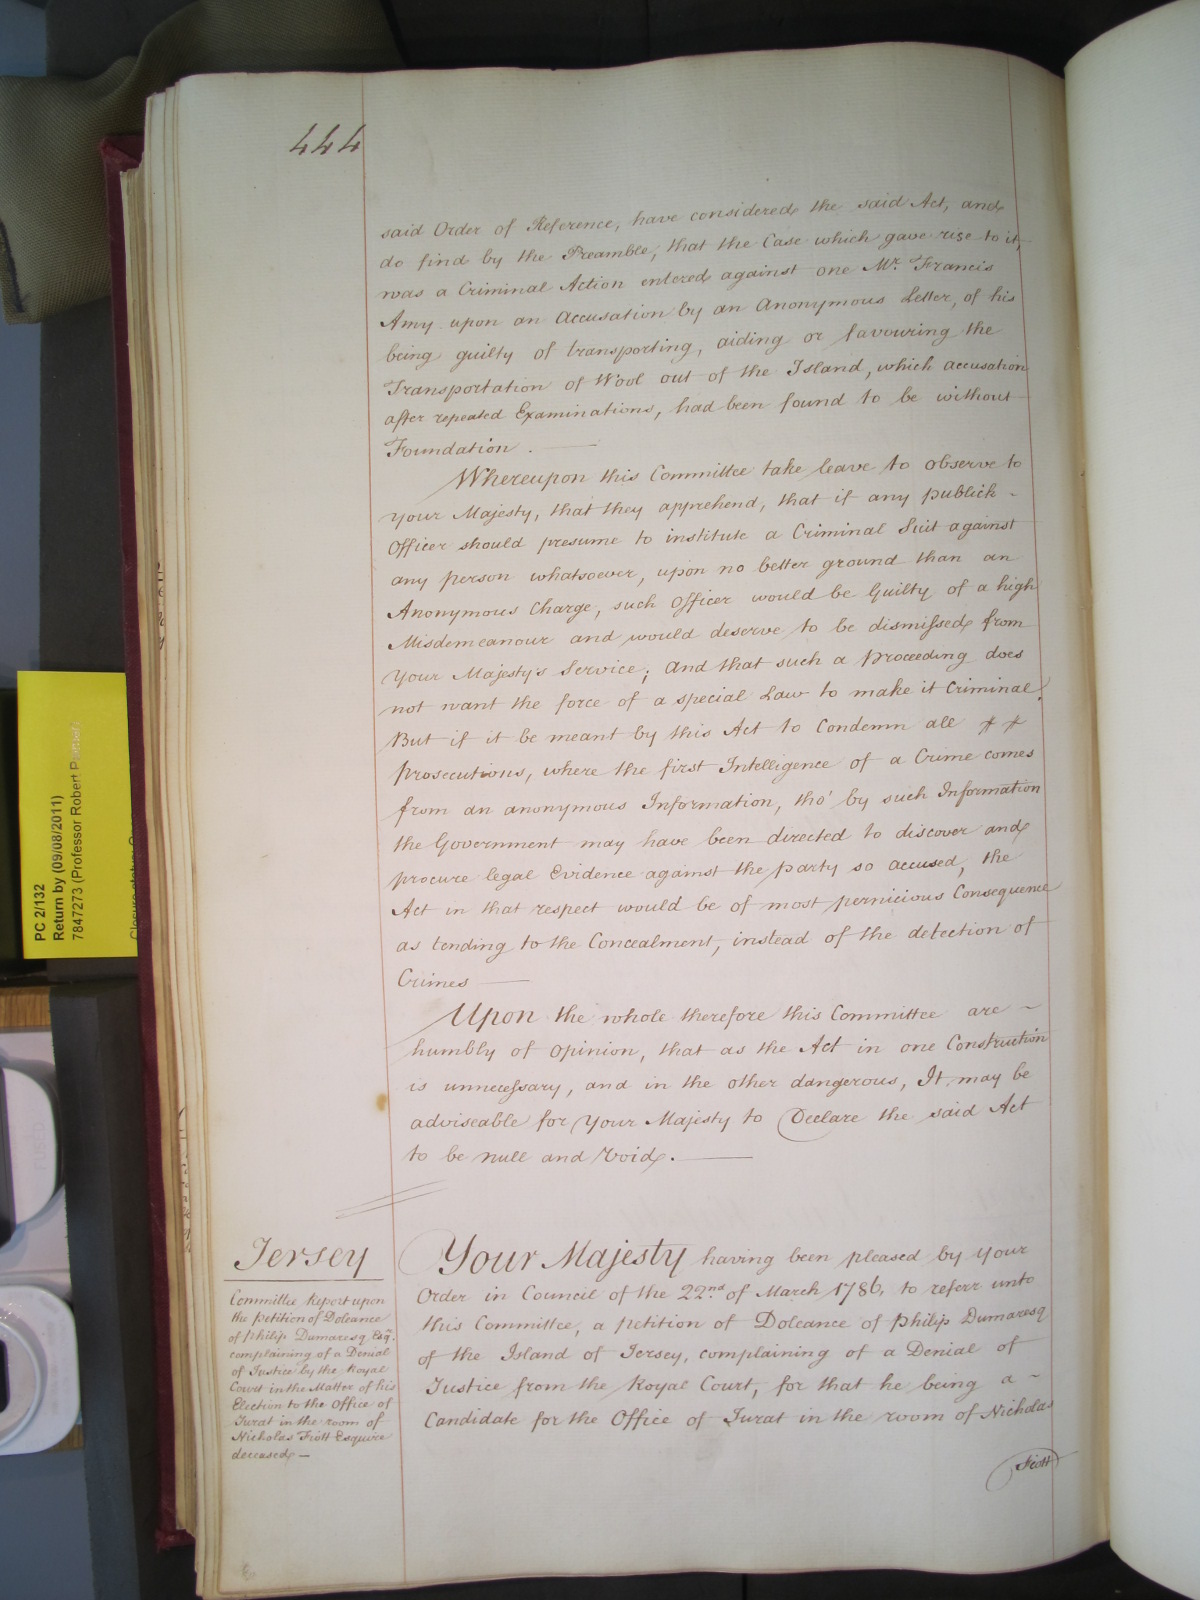 444
said Order of Reference, have considered the said Act, and
do find by the Preamble, that the Case which gave rise to it,
was a Criminal Action entered against one Mr. Francis
Amy upon an Accusation by an Anonymous Letter, of his
being guilty of transporting, aiding or favouring the
Transportation of Wool out of the Island, which accusation
after repeated Examinations, had been found to be without
Foundation.
Whereupon this Committee take leave to observe to
your Majesty, that they apprehend, that if any publick
Officer should presume to institute a Criminal Suit against
any person whatsoever, upon no better ground than an
Anonymous Charge, such Officer would be Guilty of a high
Misdemeanour and would deserve to be dismissed from
Your Majesty's Service; And that such a Proceeding does
not want the force of a special Law to make it Criminal.
But if it be meant by this Act to Condemn all
Prosecutions, where the first Intelligence of a Crime comes
from an anonymous Information, tho' by such Information
the Government may have been directed to discover and
procure legal Evidence against the party so accused, the
Act in that respect would be of most pernicious Consequence
as tending to the Concealment, instead of the detection of
Crimes —
Upon the whole therefore this Committee are
humbly of opinion, that as the Act in one Construction
is unnecessary, and in the other dangerous, It may be
adviseable for Your Majesty to Declare the said Act
to be null and Void. —
Jersey
Committee Report upon
the petition of Doleance
of Philip Dumaresq Esqr.
complaining of a Denial
of Justice by the Royal
Court in the Matter of his
Election to the Office of
Jurat in the room of
Nicholas Fiott Esquire
deceased —
Your Majesty having been pleased by Your
Order in Council of the 22nd of March 1786, to referr unto
this Committee, a petition of Doleance of Philip Dumaresq
of the Island of Jersey, complaining of a Denial of
Justice from the Royal Court, for that he being a
Candidate for the Office of Jurat in the room of Nicholas
Fiott
PC 2/132
Return by (09/08/2011)
7847273 (Professor Robert